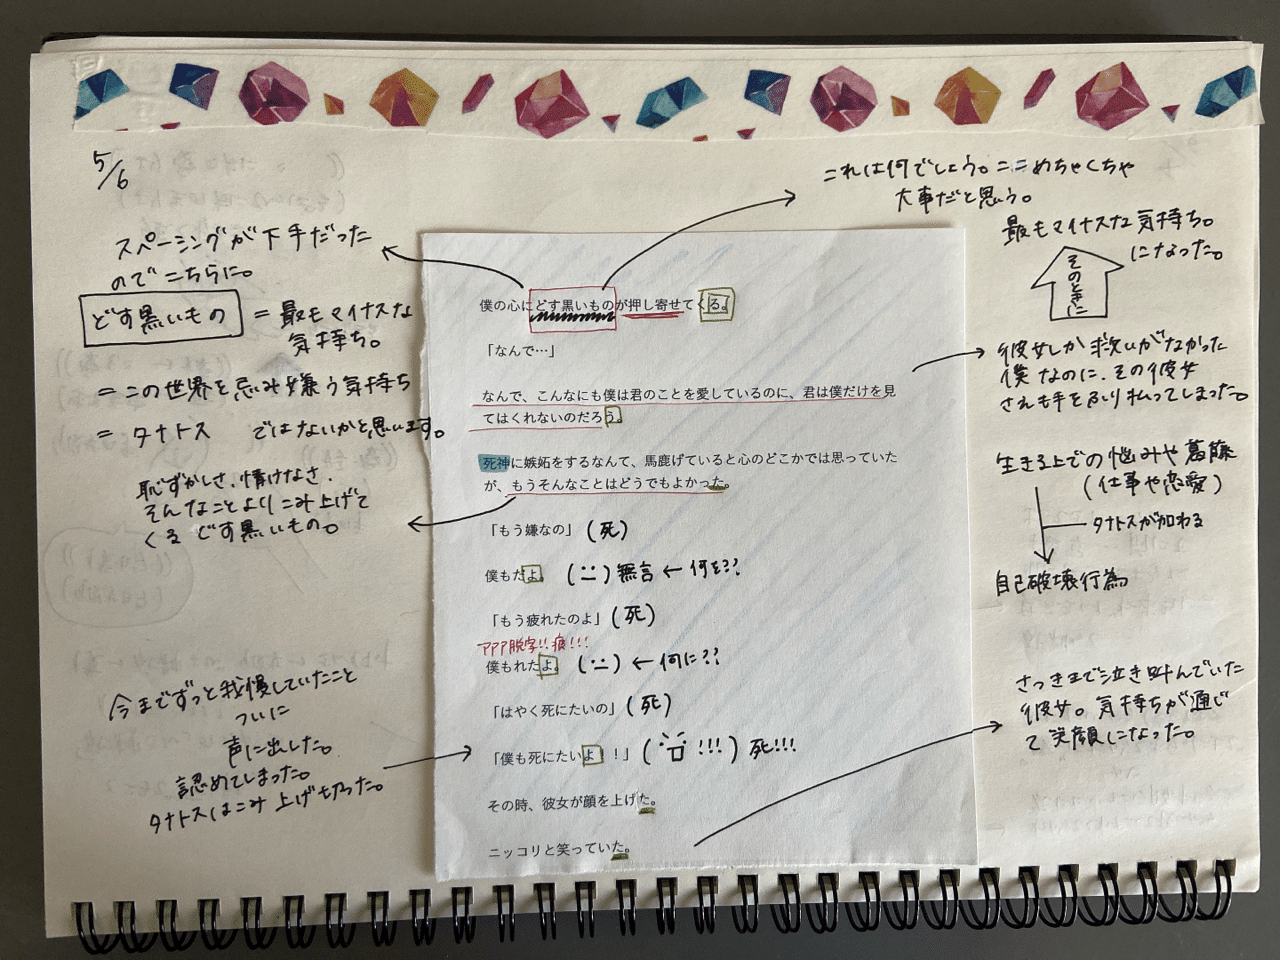 5/6
これは何でしょう。ここめちゃくちゃ
大事だと思う。
スペーシングが下手だった
のでこちらに。
どす黒いもの = 最もマイナスな
気持ち。
= この世界を忌み嫌う気持ち
= タナトス ではないかと思います。
恥ずかしさ、情けなさ、
そんなことよりこみ上げて
くる どす黒いもの。
今までずっと我慢していたこと
ついに
声に出した。
認めてしまった。
タナトスはこみ上げ切った。
僕の心にどす黒いものが押し寄せてくる。
「なんで…」
なんで、こんなにも僕は君のことを愛しているのに、君は僕だけを見
てはくれないのだろう。
死神に嫉妬をするなんて、馬鹿げていると心のどこかでは思っていた
が、もうそんなことはどうでもよかった。
「もう嫌なの」(死)
僕もだよ。 (:-) 無言 ← 何を??
「もう疲れたのよ」(死)
アアア脱字!!疲!!!
僕もれたよ。 (:-) ← 何に??
「はやく死にたいの」(死)
「僕も死にたいよ！」( !!!) 死!!!
その時、彼女が顔を上げた。
ニッコリと笑っていた。
最もマイナスな気持ち。
になった。
そのときに
彼女しか救いがなかった
僕なのに、その彼女
さえも手をふり払ってしまった。
生きる上での悩みや葛藤
(仕事や恋愛)
タナトスが加わる
自己破壊行為
さっきまで泣き叫んでいた
彼女。気持ちが通じ
て笑顔になった。